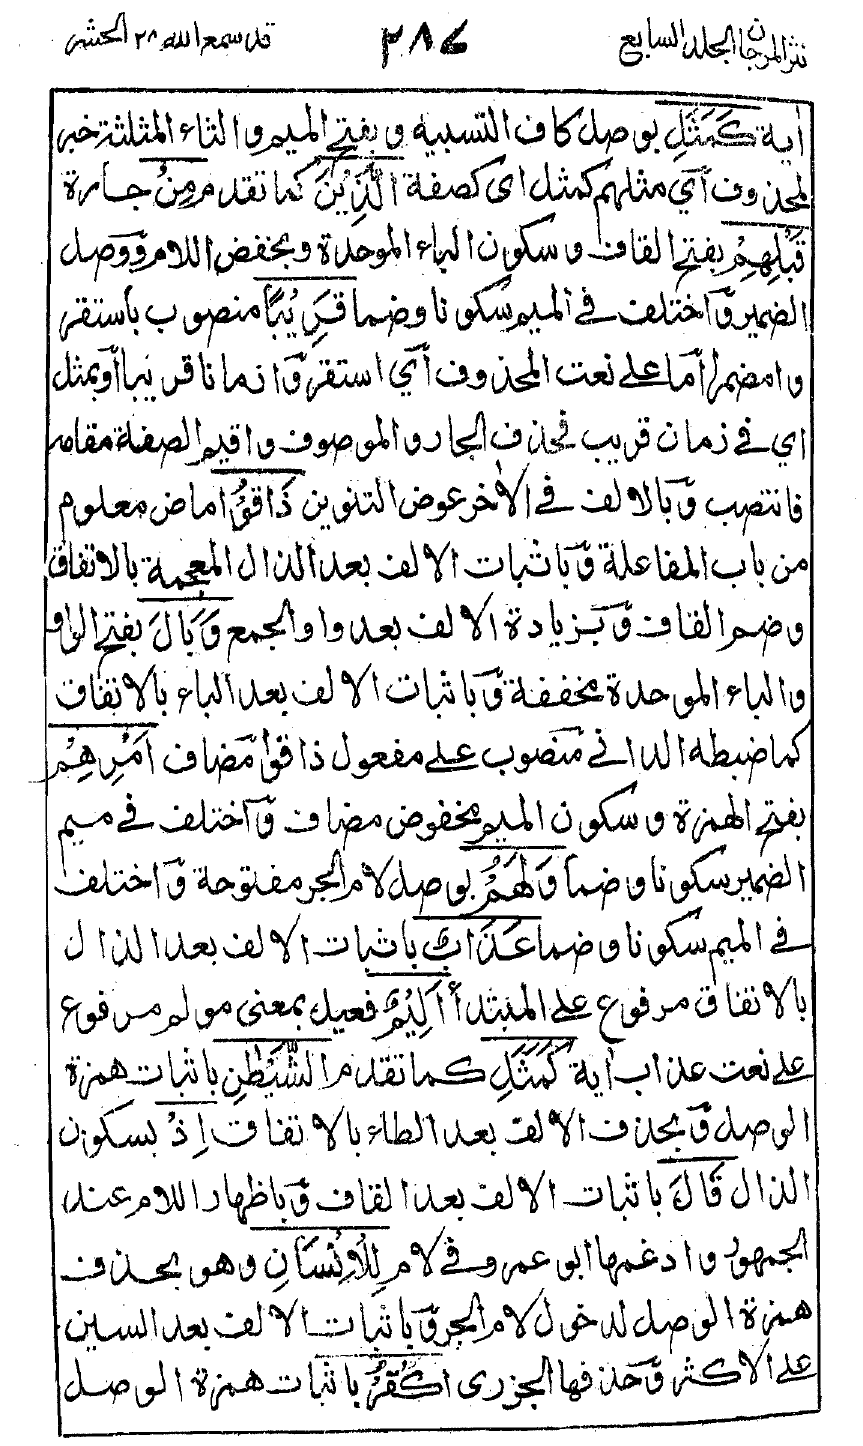 نثر المرجان المجلد السابع ٢٨٦ قد سمع الله ٢٨ الحشر
اية كَمَثَلِ بوصل كاف التشبيه و بفتح الميم والثاء المثلثة خبر
لمحذوف اي مثلهم كمثل اى كصفة الَّذِيْنَ كما تقدم مِنْ جارة
قَبْلِهِمْ بفتح القاف و سكون الباء الموحدة و بخفض اللام و وصل
الضمير و اختلف فى الميم سكونا و ضما قَرِيْبًا منصوب باستقر
وا مضمرا اما على نعت المحذوف اي استقروا زمانا قريبا او بمثل
اي فى زمان قريب فحذف الجار و الموصوف و اقيم الصفة مقامه
فانتصب و بالالف فى الأخر عوض التنوين ذَاقُوْا ماض معلوم
من باب المفاعلة و باثبات الالف بعد الذال المعجمة بالاتفاق
و ضم القاف و بزيادة الالف بعد واو الجمع وَبَالَ بفتح الواو
والباء الموحدة مخففة و باثبات الالف بعد الباء بالاتفاق
كما ضبطه الدانى منصوب على مفعول ذاقوا مضاف اَمْرِهِمْ
بفتح الهمزة و سكون الميم مخفوض مضاف و اختلف فى ميم
الضمير سكونا و ضما وَلَهُمْ بوصل لام الجر مفتوحة و اختلف
فى الميم سكونا و ضما عَذَابٌ باثبات الالف بعد الذال
بالاتفاق مرفوع على المبتدأ اَلِيْمٌ فعيل بمعنى مولم مرفوع
على نعت عذاب اية كَمَثَلِ كما تقدم الشَّيْطٰنِ باثبات همزة
الوصل و بحذف الالف بعد الطاء بالاتفاق اِذْ بسكون
الذال قَالَ باثبات الالف بعد القاف و باظهار اللام عند
الجمهور و ادغمها ابو عمرو فى لام لِلْاِنْسَانِ وهو بحذف
همزة الوصل لدخول لام الجر و باثبات الالف بعد السين
على الاكثر و حذفها الجزرى اكْفُرْ باثبات همزة الوصل